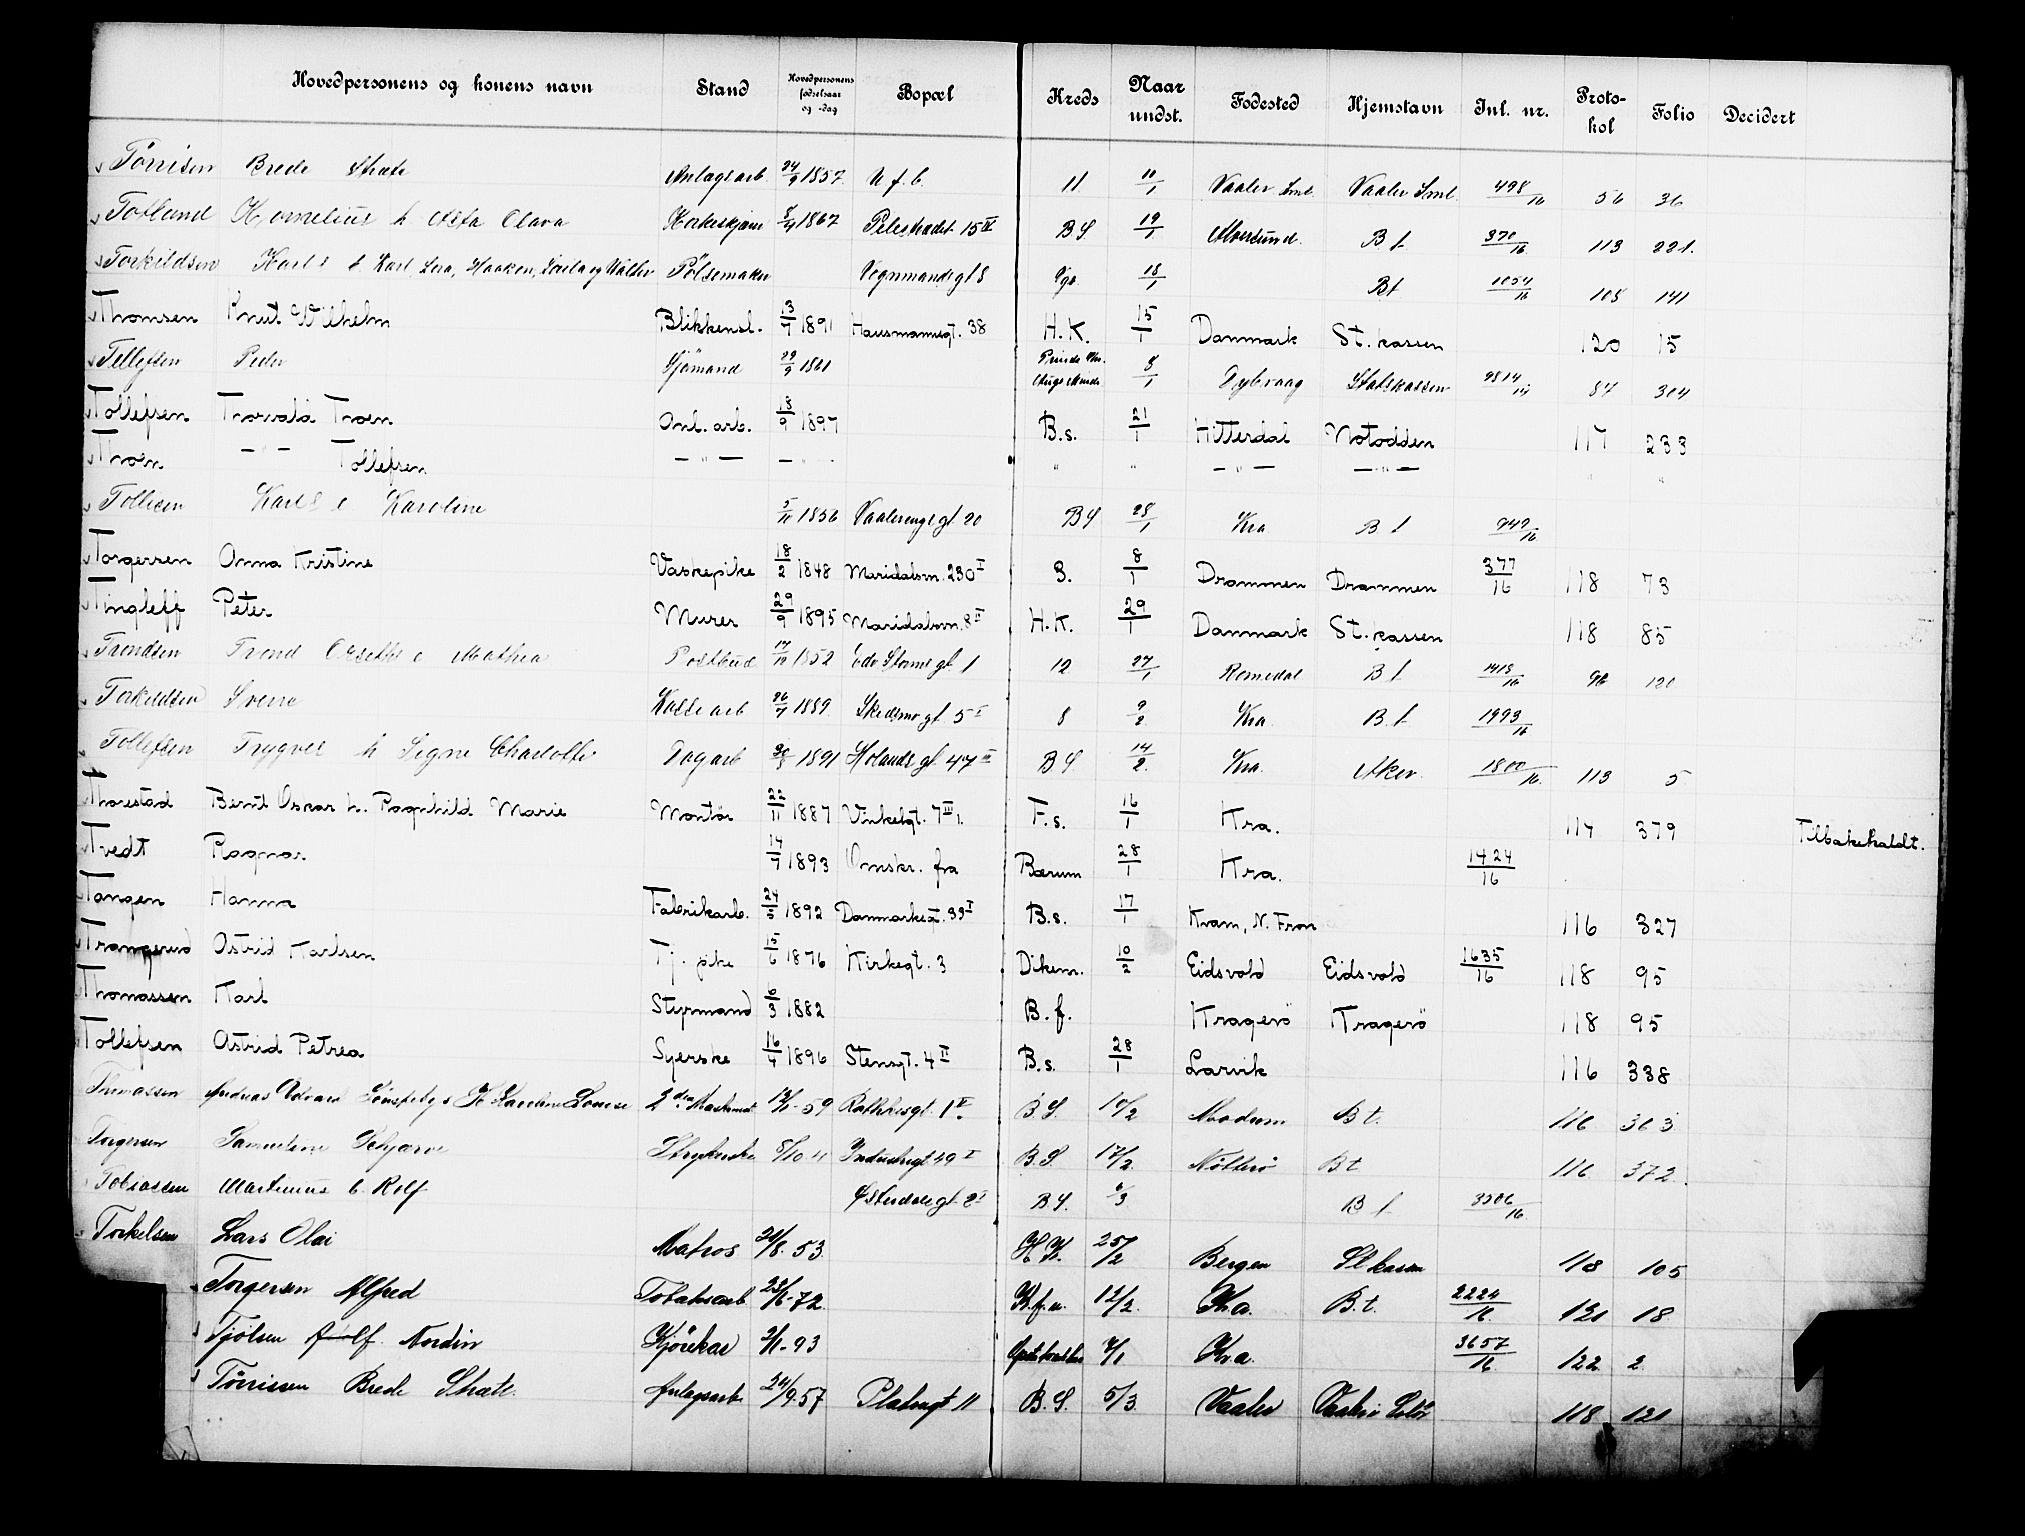 Hovedpersonens og konens navn Stand Hovedpersonens fødselsaar og -dag Bopæl Kreds Naar undst. Fødested Hjemstavn Inl. nr. Protokol Folio Decidert
Tönisen Brede Skate Anlagsarb. 24/9 1857 U. f. b. 11 11/1 Vaaler Sml. Vaaler Sml. 498/16 56 36
Totland Kornelius h Asta Clara Korkeskjær 8/4 1867 Pilestrædet 15 IV B S 19/1 Alversund B t 370/16 113 221.
Torkildsen Karl E b. Karl, Lora, Haakon, og Walter Pölsemaker Vognmandsgt 8 Vgs. 18/1 B t 1054/16 108 141
Thomsen Knut Wilhelm Blikkensl. 13/7 1891 Hausmannsgt. 38 H. K. 15/1 Danmark St. kassen 120 15
Tellefsen Peder Sjömand 29/9 1861 Prinds Chr. Augs Minde 8/1 Dybvaag Statskassen 9814/14 84 304
Tollefsen Torvald Thoen Anl. arb. 18/9 1897 B. s. 21/1 Hitterdal Notodden 117 233
Thoen — " — Tollefsen — " — — " — " " — " — — " — " "
Tollesen Karl E e Karoline 5/11 1856 Vaalerenggt. 20 B S 28/1 Kra B t 949/16
Torgersen Anna Kristine Vaskepike 18/2 1848 Maridalsvn. 230 I 3. 8/1 Drammen Drammen 377/16 118 73
Tingleff Peter Murer 29/9 1895 Maridalsvn. 8 II H. K. 29/1 Danmark St. kassen 118 85
Trondsen Trond Orseth e Mathea Postbud 17/12 1852 Edv Stormsgt. 1 12 27/1 Romedal B t 1413/16 96 120
Torkildsen Svene Kasse arb 26/7 1889. Skedsmogt. 5 I 8 9/2 Kra. B. t. 1993/16
Tollefsen Trygve h Signe Charlotte Dagarb 30/5 1891 Hølandsgt. 47 III B S 14/2. Kra. Aker. 1800/16. 113 5
Thorestad Bernt Oskar h. Ragnhild Marie Montör 22/11 1887 Vinkelgt. 7 III 1. F. s. 16/1 Kra. 117 379 Tilbakekaldt.
Tvedt Ragnar 14/7 1893 Omskr. fra Bærum 28/1 Kra. 1424/16
Tangen Hanna Fabrikarb. 24/5 1892 Danmarksgt. 33 I B. s. 17/1 Kvam, N. Fron 116 327
Trangerud Astrid Karlsen Tj. pike 15/6 1876 Kirkegt. 3 Dikem. 10/2 Eidsvold Eidsvold 1635/16 118 95
Thomassen Karl Styrmand 6/3 1882 B. f. Kragerö Kragerö 118 95
Tollefsen Astrid Petrea Syerske 16/4 1896 Stensgt. 4 II B. s. 28/1 Larvik 116 338
Thomassen Andreas Edvard Lönspet g K Karoline Lovise 2den Maskinist 13/1-59 Rathkesgt. 1 V. B. S. 10/2 Modum B t. 116 363
Torgersen Samueline Schjærve Strykerske 8/10 11 Industrigt 49 I B. S. 17/2. Nötterö B t 116 372.
Tobiassen Martinius b. Rolf Østerdalsgt. 2 I B S. 6/3 B t 3206/16.
Torkelsen Lars Olai Matros 24/8. 53. H K. 25/2 Bergen St kassen 118 105
Torgersen Alfred Tobaksarb 23/6-72. K. f. u. 12/2. Kra. B. t. 2224/16. 121 18
Tjölsen Nordin Kjörekar 2/1-93 7/1 Kra. 3657/16 122 2
Tönissen Brede Skate Anlagsarb. 24/9-57 Platousgt 11 B. S. 5/3. Vaaler Vaaler Solör 118 121